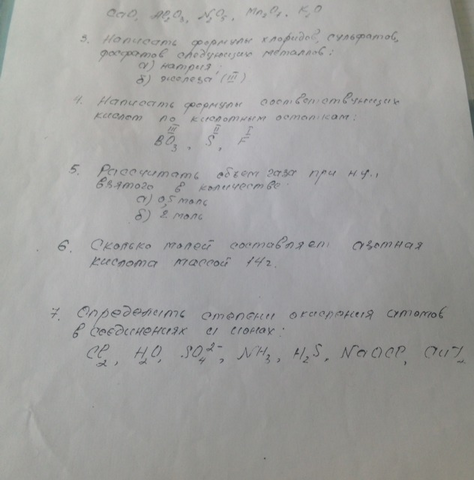 CaO, Al₂O₃, N₂O₅, Mn₂O₇, K₂O
3. Написать формулы хлоридов, сульфатов,
фосфатов следующих металлов:
а) натрия;
б) железа (III)
4. Написать формулы соответствующих
кислот по кислотным остаткам:
III III I
BO₃, S, F
5. Рассчитать объем газа при н.у.,
взятого в количестве:
а) 0,5 моль
б) 2 моль
6. Сколько молей составляет азотная
кислота массой 14 г.
7. Определить степени окисления атомов
в соединениях и ионах:
Cl₂, H₂O, SO₄²⁻, NH₃, H₂S, NaOCl,